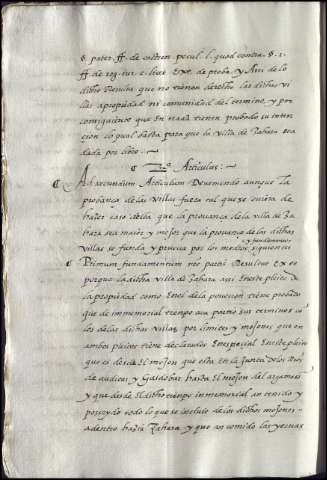 §. pater ff. de castren. pecul. l. quod contra. §. 1.
ff. de reg. iur. c. licet Ex.ᵗᵉ de proba. y Assi de lo
dicho Resulta que no tienen derecho las dichas vi
llas a propiedad ni comunidad del termino, y por
consiguiente que En nada tienen probada su inten
cion lo qual basta para que la villa de Zahara sea
dada por libre.
2.ᵘˢ Articulus:
Ad secundum Articulum Deveniendo aunque La
probança de las Villas fuera tal que se oviera de
hazer caso della que la provança de la villa de Za
hara sea maior y mejor que la provança de las dichas
Villas se funda y prueva por los medios siguientes
y fundamentos
Primum fundamentum
porque la dicha villa de Zahara assi En este pleito de
la propiedad como En el de la posesion tiene probado
que de immemorial tiempo aca partio sus terminos co
los de las dichas Villas por limites y mojones que en
ambos pleitos tiene declarados En especial En este pleito
que es desde El mojon que esta En la Junta de los Rios
de audita y Guadobar hasta El mojon del
y que desde El dicho tiempo immemorial an tenido y
poseydo todo lo que se incluie de los dichos mojones
adentro hazia Zahara y que an comido las yervas